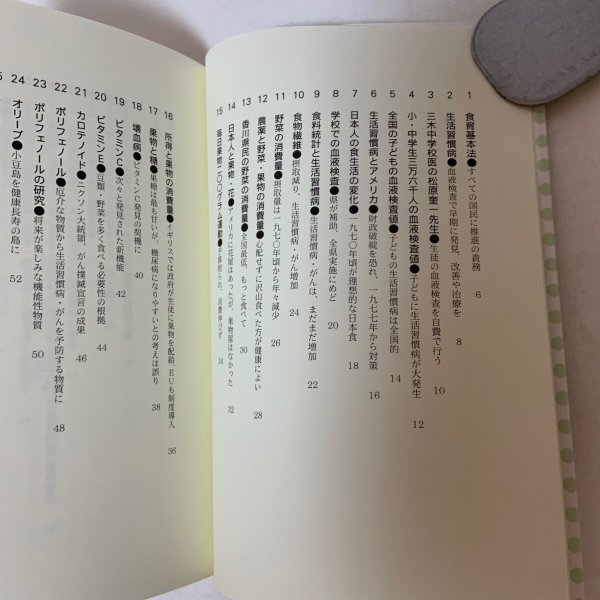 1 食育基本法●すべての国民に推進の責務 6
2 生活習慣病●血液検査で早期に発見、改善や治療を 8
3 三木中学校医の松原奎一先生●生徒の血液検査を自費で行う 10
4 小・中学生三万六千人の血液検査値●子どもに生活習慣病が大発生 12
5 全国の子どもの血液検査値●子どもの生活習慣病は全国的 14
6 生活習慣病とアメリカ●財政破綻を恐れ、一九七七年から対策 16
7 日本人の食生活の変化●一九七〇年頃が理想的な日本食 18
8 学校での血液検査●県が補助、全県実施にめど 20
9 食料統計と生活習慣病●生活習慣病・がんは、まだまだ増加 22
10 食物繊維●摂取減り、生活習慣病・がん増加 24
11 野菜の消費量●摂取量は一九七〇年から年々減少 26
12 農薬と野菜・果物の消費量●心配せずに沢山食べた方が健康によい 28
13 香川県民の野菜の消費量●全国最低、もっと食べて 30
14 日本人と果物・花●アメリカに花屋はあったが、果物屋はなかった 32
15 毎日果物二〇〇グラム運動● 34
16 所得と果物の消費量●イギリスでは政府が生徒に果物を配給、EUも制度導入 36
17 果物と糖●果糖は最も甘いが、糖尿病になりやすいとの考えは誤り 38
18 壊血病●ビタミンC発見の契機に 40
19 ビタミンC●次々と発見された新機能 42
20 ビタミンE●豆類・野菜を多く食べる必要性の根拠 44
21 カロテノイド●ニクソン大統領、がん撲滅宣言の成果 46
22 ポリフェノール●厄介な物質から生活習慣病・がんを予防する物質に 48
23 ポリフェノールの研究●将来が楽しみな機能性物質 50
24 オリーブ●小豆島を健康長寿の島に 52